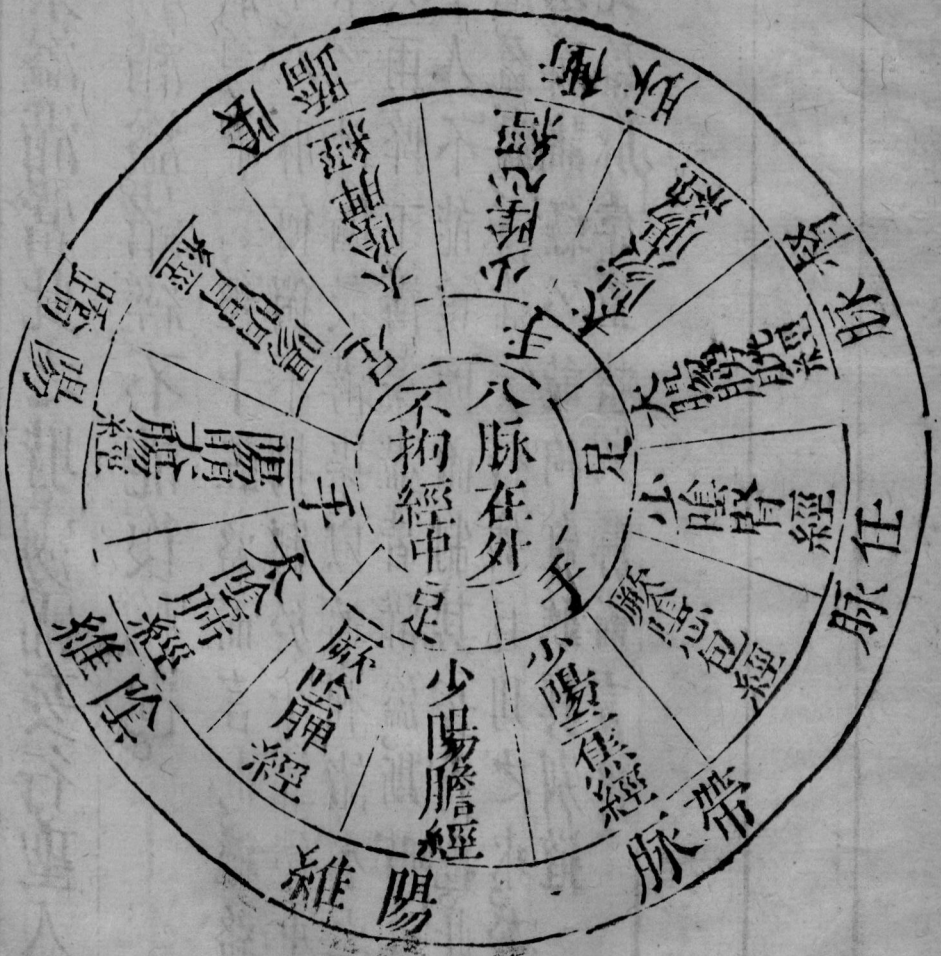 八脉在外
不拘經中
手
足
手
足
手
足
少陰心經
太陽小腸經
太陽膀胱經
少陰腎經
厥陰心包經
少陽三焦經
少陽膽經
厥陰肝經
太陰肺經
陽明大腸經
陽明胃經
太陰脾經
衝脉
督脉
任脉
帶脉
陽維
陰維
陽蹻
陰蹻